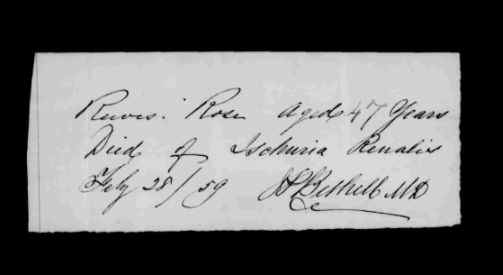 Reeves. Rose Aged 47 Years
Died of Ischuria Renalis
Feby 28/59 Bethell MD